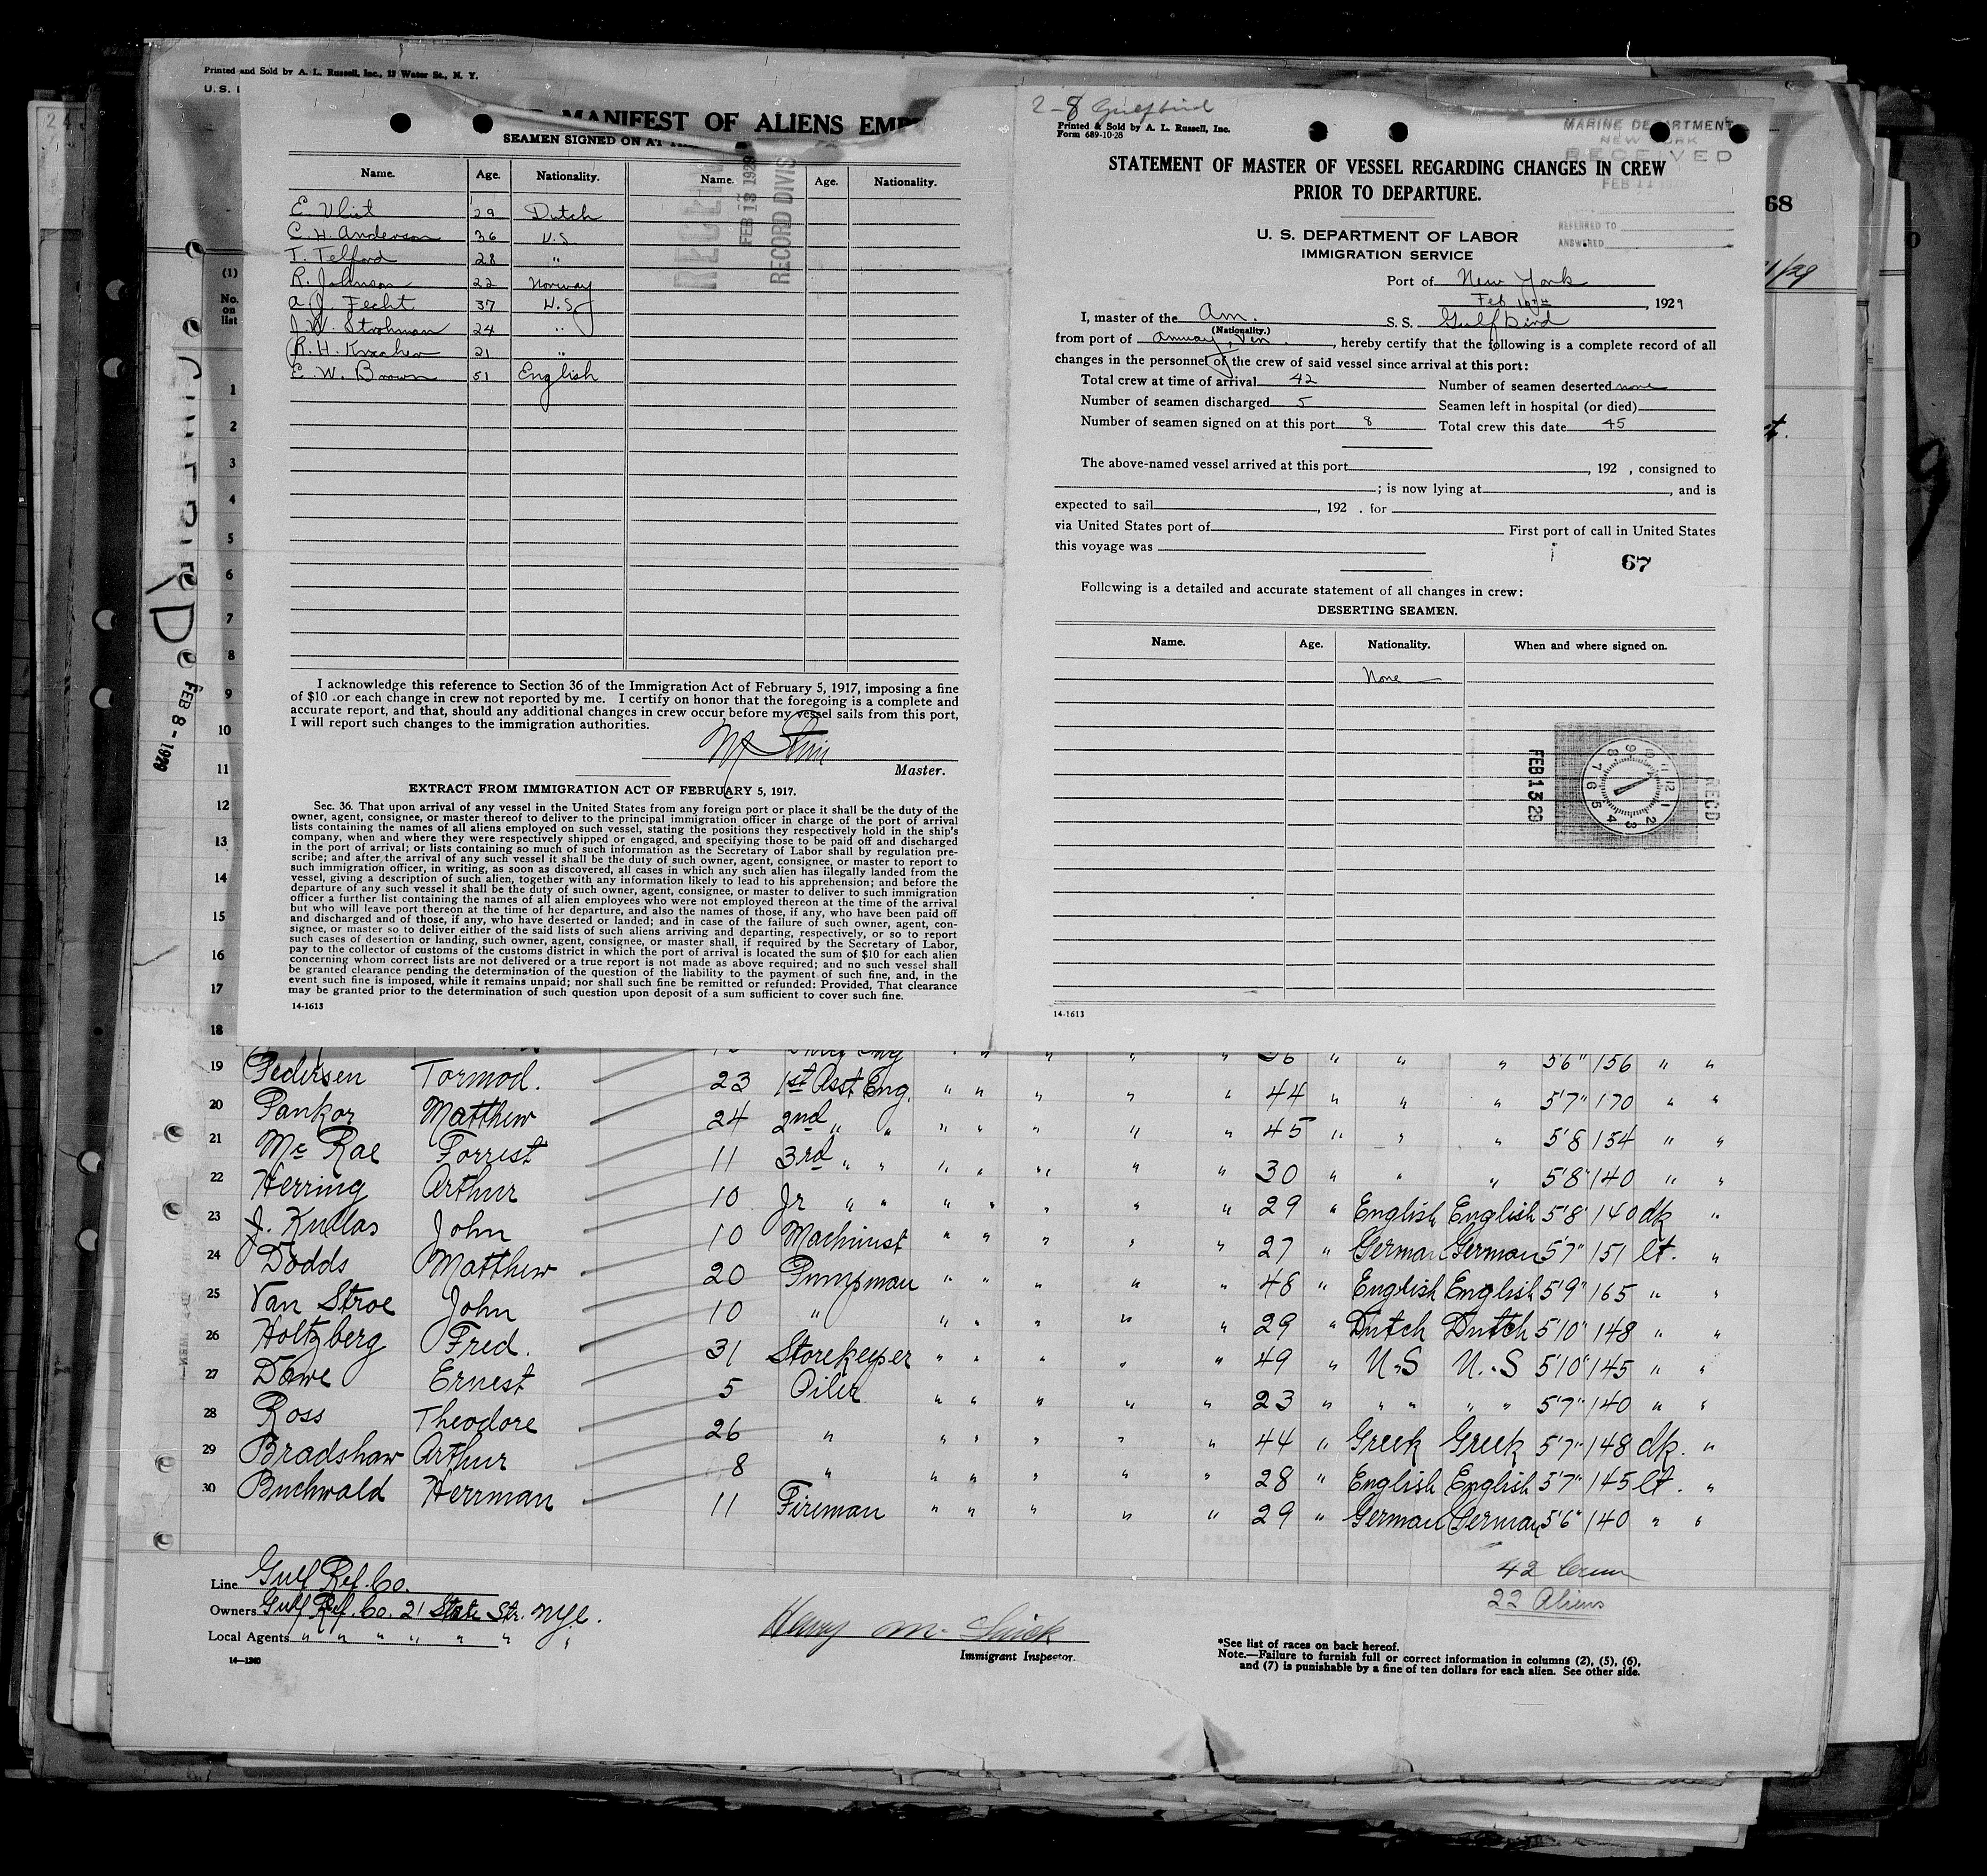 Printed and Sold by A. L. Russell, Inc., 13 Water St., N. Y.
U. S.
MANIFEST OF ALIENS
SEAMEN SIGNED ON AT
Name. Age. Nationality. Name. Age. Nationality.
E. Vliet 29 Dutch
C. H. Anderson 36 U.S.
T. Telford 28 "
R. Johnson 22 Norway
A. J. Fecht 37 U.S.
J. W. Strohman 24 "
R. H. Kracher 21 "
E. W. Brown 51 English
FEB 13 1929
RECORD DIVIS
I acknowledge this reference to Section 36 of the Immigration Act of February 5, 1917, imposing a fine
of $10 .or each change in crew not reported by me. I certify on honor that the foregoing is a complete and
accurate report, and that, should any additional changes in crew occur before my vessel sails from this port,
I will report such changes to the immigration authorities.
Master.
EXTRACT FROM IMMIGRATION ACT OF FEBRUARY 5, 1917.
Sec. 36. That upon arrival of any vessel in the United States from any foreign port or place it shall be the duty of the
owner, agent, consignee, or master thereof to deliver to the principal immigration officer in charge of the port of arrival
lists containing the names of all aliens employed on such vessel, stating the positions they respectively hold in the ship's
company, when and where they were respectively shipped or engaged, and specifying those to be paid off and discharged
in the port of arrival; or lists containing so much of such information as the Secretary of Labor shall by regulation pre-
scribe; and after the arrival of any such vessel it shall be the duty of such owner, agent, consignee, or master to report to
such immigration officer, in writing, as soon as discovered, all cases in which any such alien has illegally landed from the
vessel, giving a description of such alien, together with any information likely to lead to his apprehension; and before the
departure of any such vessel it shall be the duty of such owner, agent, consignee, or master to deliver to such immigration
officer a further list containing the names of all alien employees who were not employed thereon at the time of the arrival
but who will leave port thereon at the time of her departure, and also the names of those, if any, who have been paid off
and discharged and of those, if any, who have deserted or landed; and in case of the failure of such owner, agent, con-
signee, or master so to deliver either of the said lists of such aliens arriving and departing, respectively, or so to report
such cases of desertion or landing, such owner, agent, consignee, or master shall, if required by the Secretary of Labor,
pay to the collector of customs of the customs district in which the port of arrival is located the sum of $10 for each alien
concerning whom correct lists are not delivered or a true report is not made as above required; and no such vessel shall
be granted clearance pending the determination of the question of the liability to the payment of such fine, and, in the
event such fine is imposed, while it remains unpaid; nor shall such fine be remitted or refunded: Provided, That clearance
may be granted prior to the determination of such question upon deposit of a sum sufficient to cover such fine.
14-1613
2-8 Gulfbird
Printed & Sold by A. L. Russell, Inc.
Form 689-10-28
MARINE DEPARTMENT
NEW YORK
RECEIVED
FEB 11
REFERRED TO
ANSWERED
STATEMENT OF MASTER OF VESSEL REGARDING CHANGES IN CREW
PRIOR TO DEPARTURE.
U. S. DEPARTMENT OF LABOR
IMMIGRATION SERVICE
Port of New York
Feb 10th, 1929
I, master of the Am. S. S. Gulfbird
(Nationality.)
from port of Amuay, Ven., hereby certify that the following is a complete record of all
changes in the personnel of the crew of said vessel since arrival at this port:
Total crew at time of arrival 42 Number of seamen deserted none
Number of seamen discharged 5 Seamen left in hospital (or died)
Number of seamen signed on at this port 8 Total crew this date 45
The above-named vessel arrived at this port , 192 , consigned to
; is now lying at , and is
expected to sail , 192 . for
via United States port of First port of call in United States
this voyage was
67
Following is a detailed and accurate statement of all changes in crew:
DESERTING SEAMEN.
Name. Age. Nationality. When and where signed on.
None
FEB 13 29
REC'D
14-1613
68
(1)
No.
on
list
1
2
3
4
5
6
7
8
9
10
11
12
13
14
15
16
17
18
GULFBIRD
FEB 8 - 1929
36 " " " 5'6" 156 " "
19 Pedersen Tormod. 23 1st Asst Eng. " " " " " 44 " " " 5'7" 170 " "
20 Pankor Matthew 24 2nd " " " " " " " 45 " " " 5'8 154 " "
21 Mc Rae Forrest 11 3rd " " " " " " " 30 " " " 5'8" 140 " "
22 Herring Arthur 10 Jr " " " " " " " 29 " English English 5'8" 140 dk "
23 J. Kudlas John 10 Machinist " " " " " 27 " German German 5'7" 151 lt. "
24 Dodds Matthew 20 Pumpman " " " " " 48 " English English 5'9" 165 " "
25 Van Stroe John 10 " " " " " " 29 " Dutch Dutch 5'10" 148 " "
26 Holtzberg Fred. 31 Storekeeper " " " " " 49 " U.S U.S 5'10" 145 " "
27 Dawe Ernest 5 Oiler " " " " " 23 " " " " " 5'7" 140 " "
28 Ross Theodore 26 " " " " " " 44 " Greek Greek 5'7" 148 dk. "
29 Bradshaw Arthur 8 " " " " " " 28 " English English 5'7" 145 lt. "
30 Buchwald Herrman 11 Fireman " " " " " 29 " German German 5'6" 140 " "
42 Crew
22 Aliens
Line Gulf Ref. Co.
Owners Gulf Ref. Co. 21 State Str. N.Y.C.
Local Agents " " " " " " "
14-1240
Immigrant Inspector.
*See list of races on back hereof.
Note.—Failure to furnish full or correct information in columns (2), (5), (6),
and (7) is punishable by a fine of ten dollars for each alien. See other side.